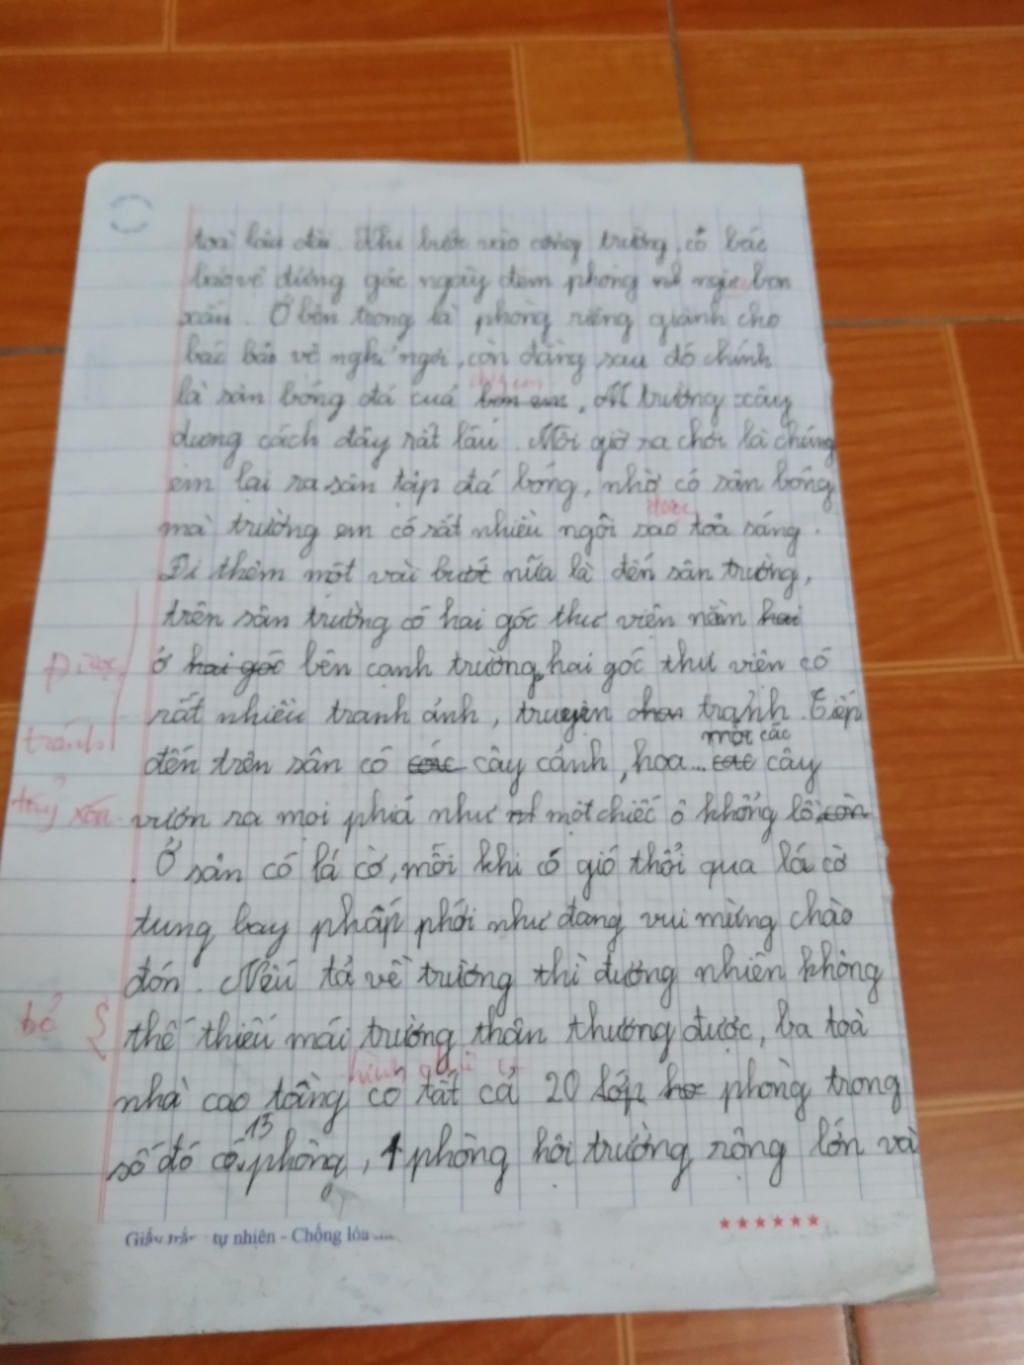 toà lâu đài. Khi bước vào cổng trường, có bác
bảo vệ đứng gác ngày đêm phòng bọn
xấu. Ở bên trong là phòng riêng giành cho
bác bảo vệ nghỉ ngơi, còn đằng sau đó chính
là sân bóng đá cuả bọn em, trường xây
dưng cách đây rất lâu. Mỗi giờ ra chơi là chúng
em lại ra sân tập đá bóng, nhờ có sân bóng
được
mà trường em có rất nhiều ngôi sao toả sáng.
Đi thêm một vài bước nữa là đến sân trường,
trên sân trường có hai góc thư viện nằm hai
ở hai góc bên cạnh trường, hai góc thư viên có
rất nhiều tranh ảnh, truyện tranh. Tiếp
tránh
mọi các
đến trên sân có các cây cảnh, hoa... các cây
vươn ra mọi phiá như một chiếc ô khổng lồ, còn
Ở sân có lá cờ, mỗi khi có gió thổi qua lá cờ
tung bay phấp phới như đang vui mừng chào
đón. Nếu tả về trường thì đương nhiên không
bỏ
thể thiếu mái trường thân thương được, ba toà
nhà cao tầng có tất cả 20 lớp học phòng trong
13
số đó có phòng, 1 phòng hội trường rộng lớn và
Giấy trắng tự nhiên - Chống lóa